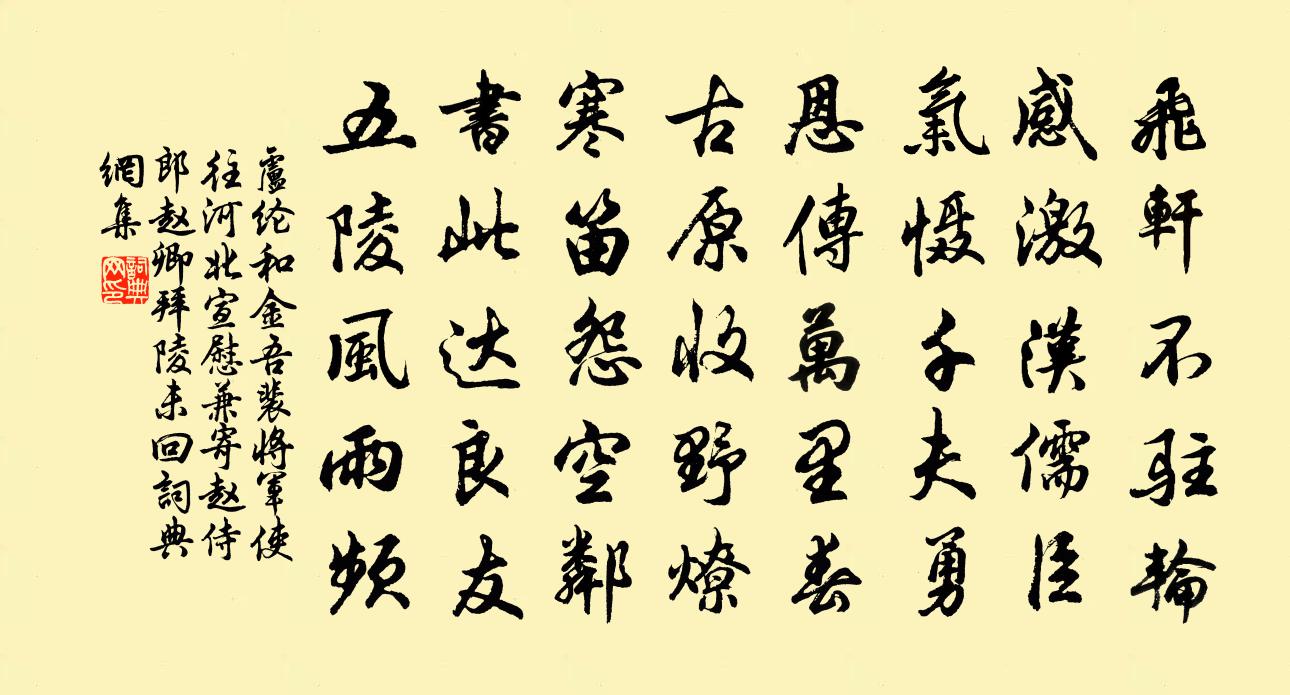 飛軒不駐輪
感激漢儒臣
氣慑千夫勇
恩傳萬里春
古原收野燎
寒笛怨空鄰
書此达良友
五陵風雨頻
盧纶和金吾裴將軍使
往河北宣慰兼寄赵侍
郎赵卿拜陵未回詞典
網集
詞典
网印